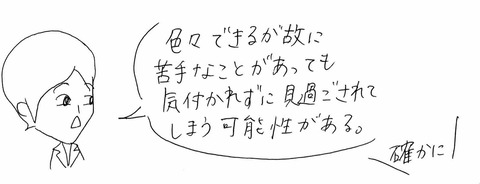 色々できるが故に
苦手なことがあっても
気付かれずに見過ごされて
しまう可能性がある。
確かに!